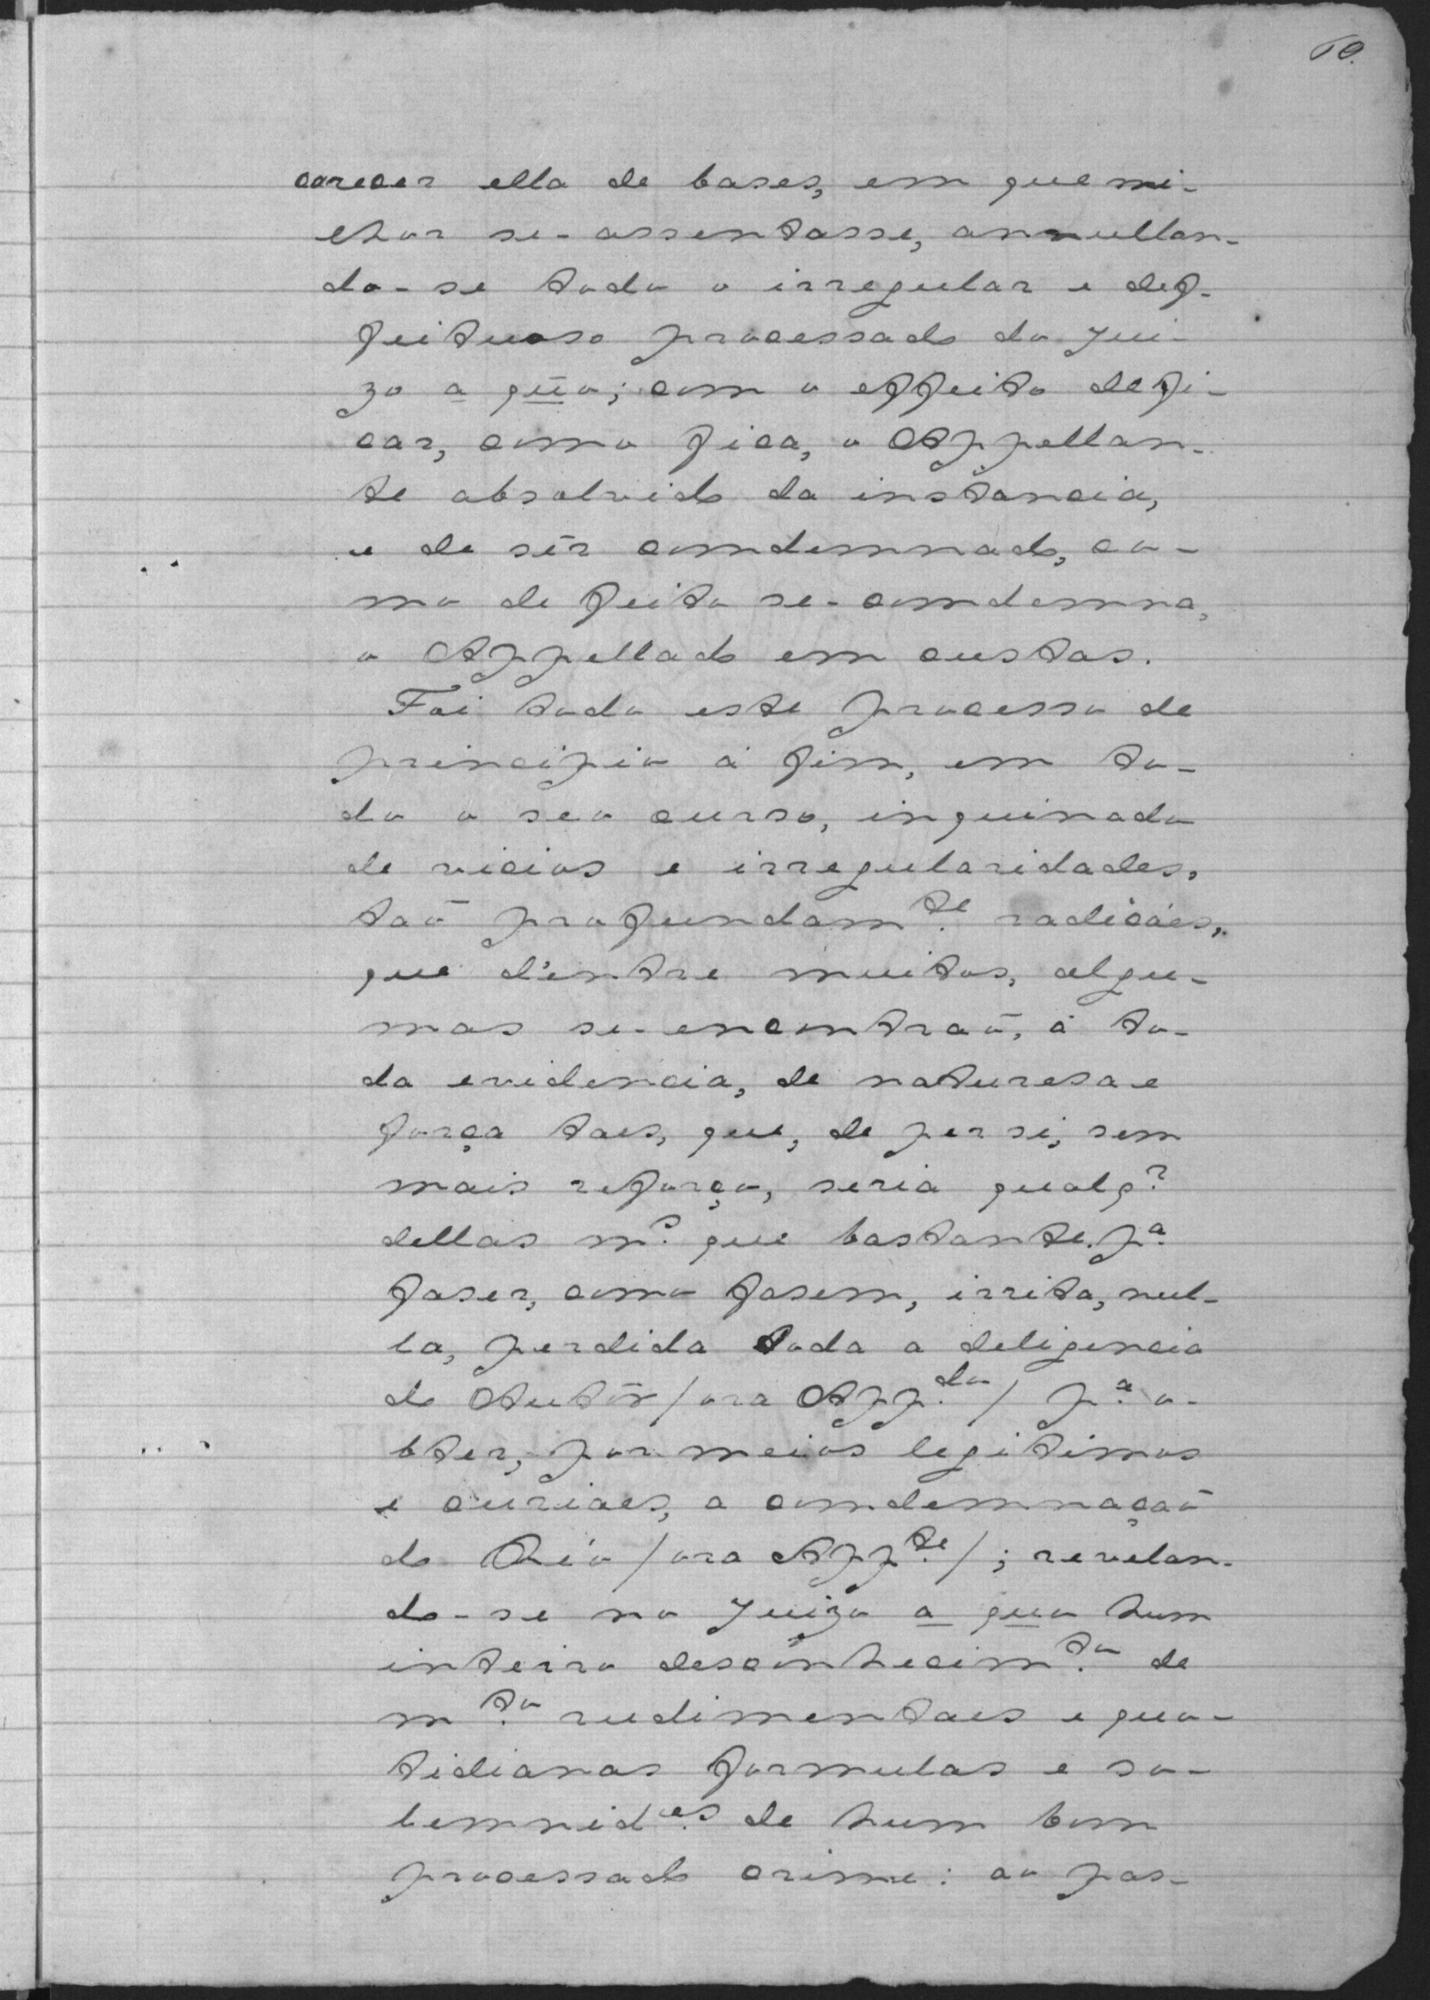 60.
carecer ella de bases, em que mi-
lhor se-assentasse, annullan-
do-se todo o irregular e def-
feituoso processado do Jui-
zo a quo; com o effeito de fi-
car, como fica, o Appellan-
te absolvido da instancia,
e de sêr comdemnado, co-
mo de feito se-comdemna,
o Appellado em custas.
Foi todo este processo de
principio á fim, em to-
do o seo curso, inquinado
de vicios e irregularidades,
taõ profundamte. radicáes,
que d'entre muitos, algu-
mas se-encontraõ, á to-
da evidencia, de naturesa e
força taes, que, de per si, sem
mais reforço, seria qualqr.
dellas ms. que bastante pa.
faser, como fasem, irrita, nul-
la, perdida toda a deligencia
do Autôr /ora Appdo./ pa. o-
bter, por meios legitimos
e curiaes, a comdemnaçaõ
do Réo /ora Appte./; revelan-
do-se no Juizo a quo hum
inteiro desconhecimto. de
mto. rudimentaes e quo-
tidianas formulas e so-
lemnides. de hum bom
processado crime: ao pas-